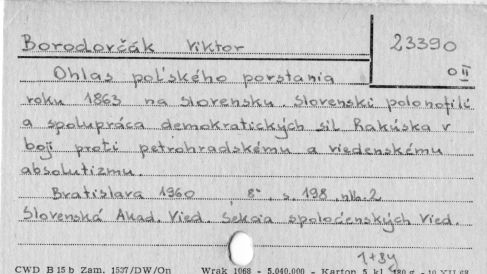 Borodovčák Viktor 23390
O II
Ohlas poľského povstania
roku 1863 na slovensku. Slovenskí polonofili
a spolupráca demokratických síl Rakúska v
boji proti petrohradskému a viedenskému
absolutizmu.
Bratislava 1960, 8°, s. 198, nlb. 2
Slovenská Akad. Vied. Sekcia spoločenských Vied.
1+8y
CWD B 15 b Zam. 1537/DW/On Wrak 1068 - 5.040.000 - Karton 5 kl. 180 g - 10 XII 68